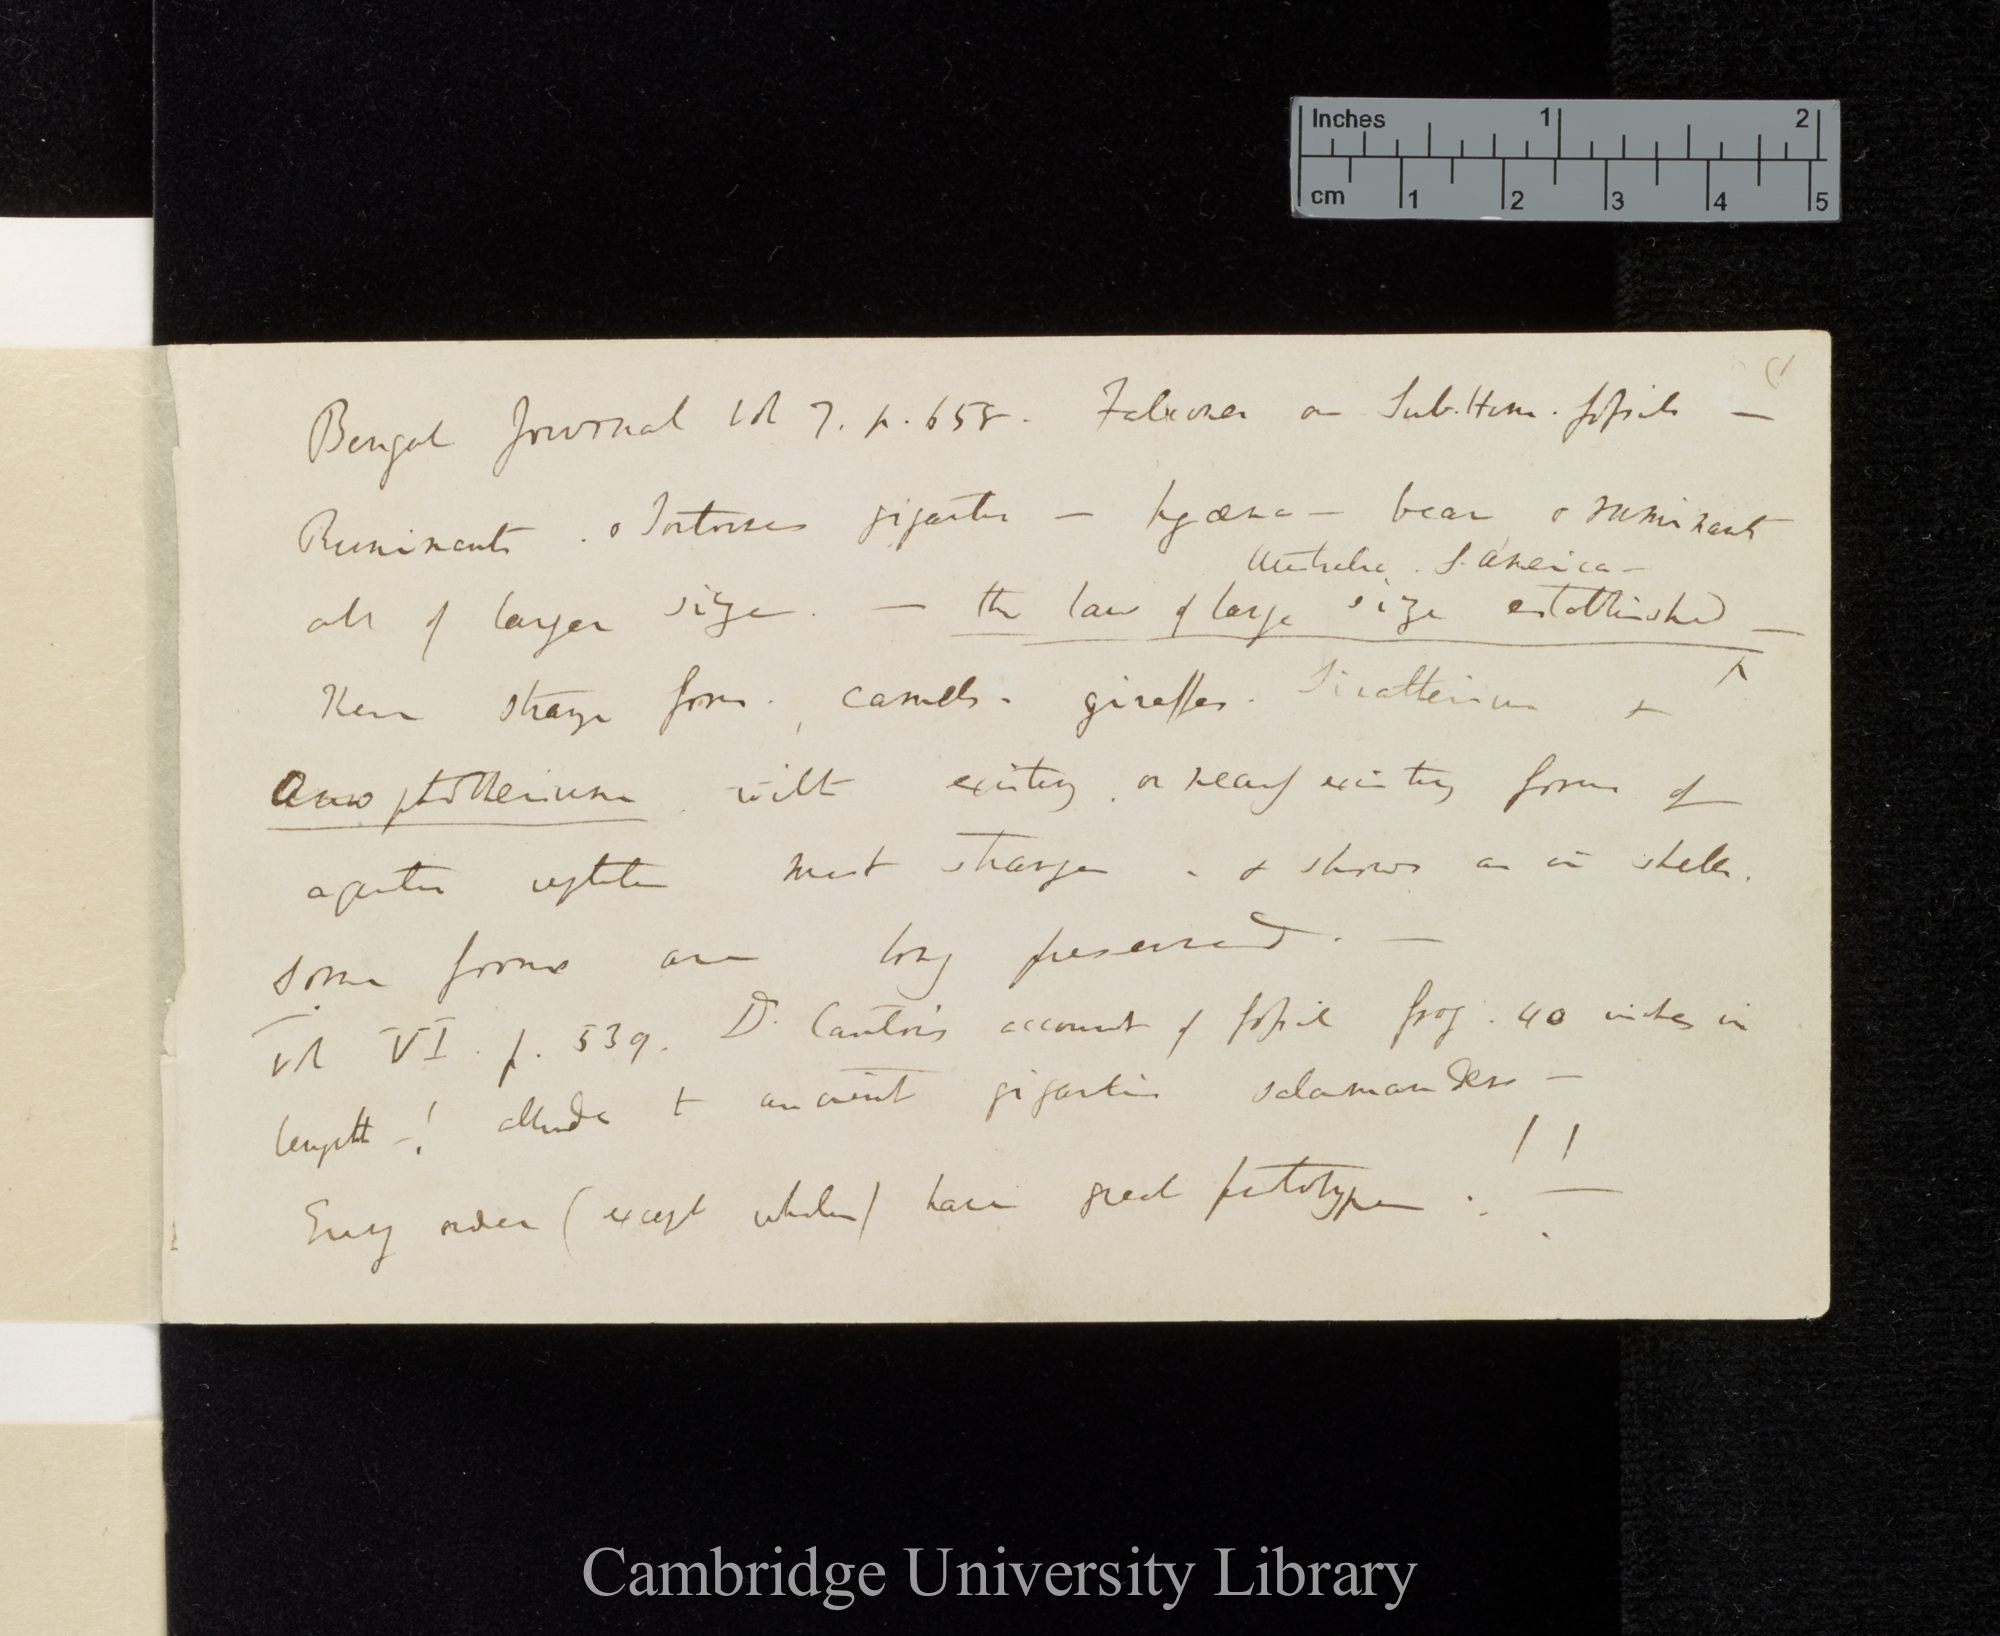 Inches 1 2
cm 1 2 3 4 5
Bengal Journal Vol 7. p. 658. Falconer on Sub. Him. fossils —
Ruminants . & Tortoises gigantic — hyæna — bear & ruminants
Australia . S. America —
all of larger size. — the law of large size established —
Here strange form. camels. giraffes. Sivatherium &
Anoplotherium with existing or nearly existing forms of
aquatic reptiles most strange . & shows as in shells.
some forms are long preserved. —
Vol VI. p. 539. Dr. Cantor's account of fossil frog. 40 inches in
length —! alludes to ancient gigantic salamanders —
Every order (except whales) have great prototypes . !!
Cambridge University Library